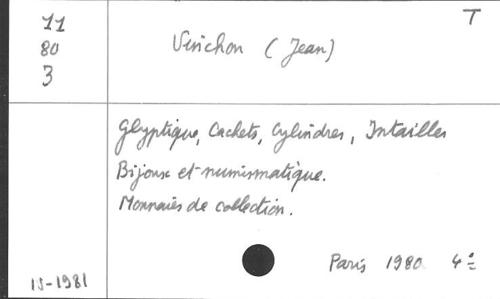 11
80
3
T
Vinchon (Jean)
Glyptique, Cachets, Cylindres, Intailles
Bijoux et numismatique.
Monnaies de collection.
Paris 1980 4°
15-1981